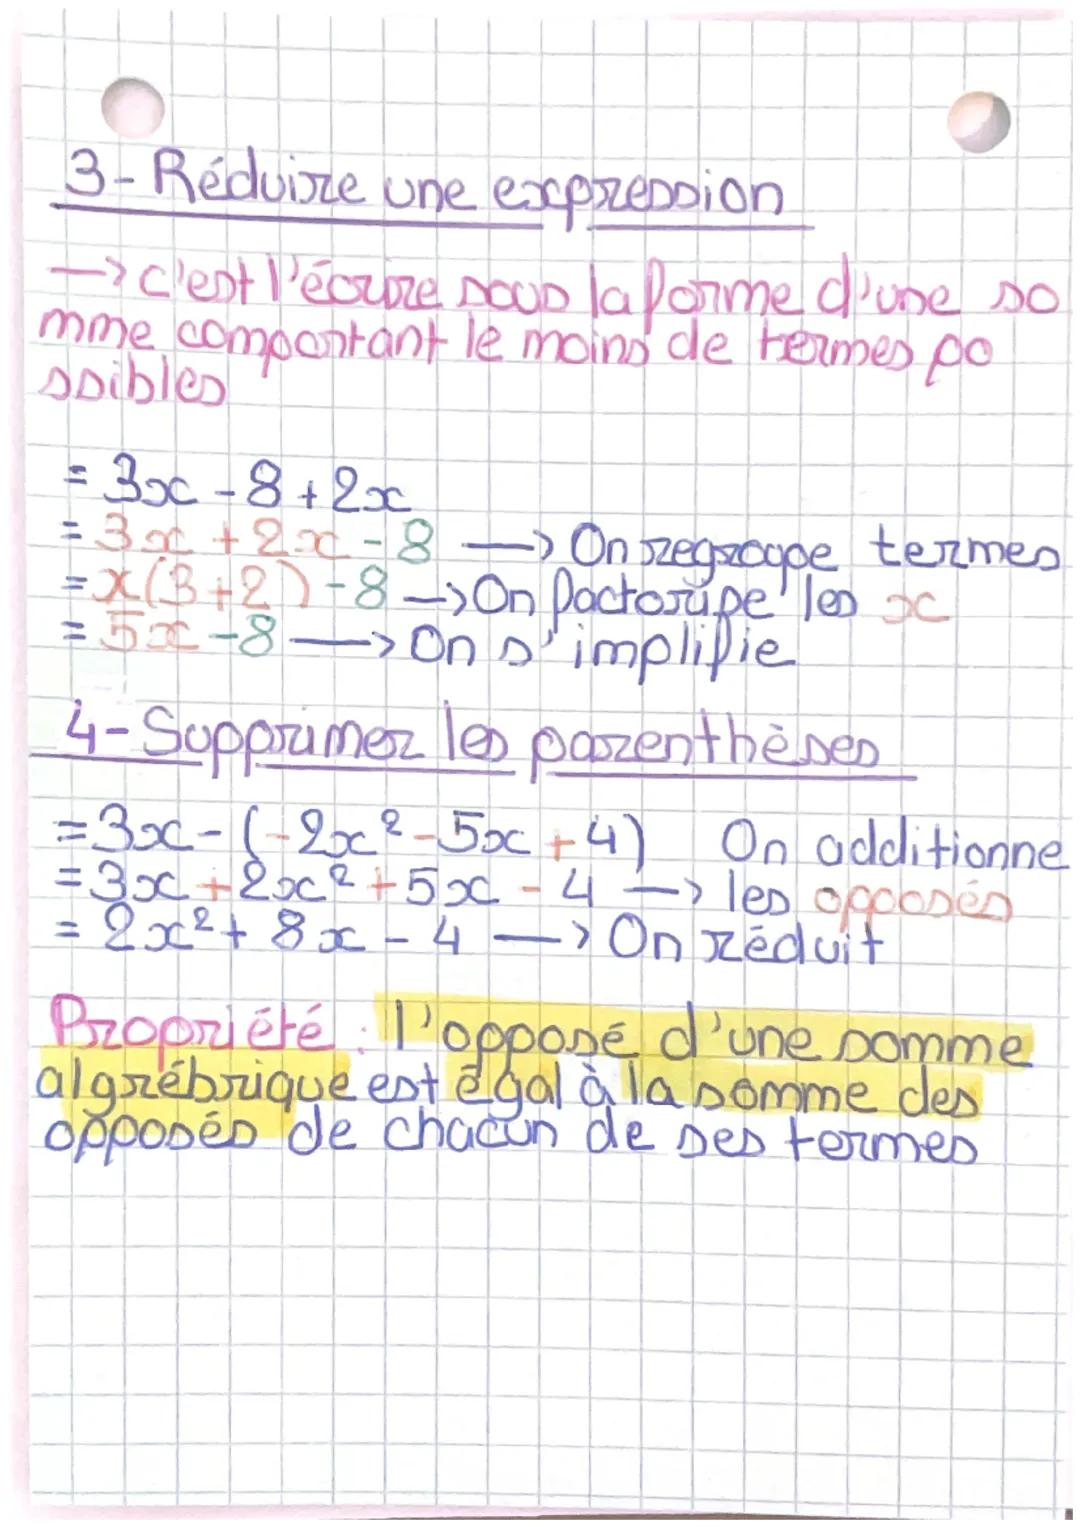 3-Réduire une expression
—> c'est l'écrire sous la forme d'une so
mme comportant le moins de termes po
ssibles
= 3x - 8 + 2x
= 3x + 2x - 8 —> On regroupe termes
= x(3+2) - 8 —> On factorise les x
= 5x - 8 —> On s'implifie
4-Supprimer les parenthèses
= 3x - (-2x² - 5x + 4) On additionne
= 3x + 2x² + 5x - 4 —> les opposés
= 2x² + 8x - 4 —> On réduit
Propriété : l'opposé d'une somme
algrébrique est égal à la somme des
opposés de chacun de ses termes